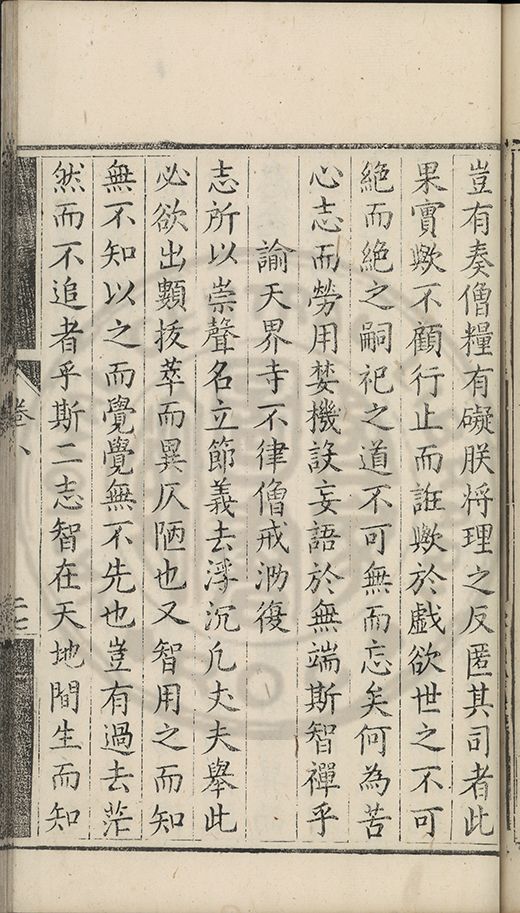 豈有奏僧糧有礙朕将理之反匿其司者此
果實歟不顧行止而誑歟於戲欲世之不可
絶而絶之嗣祀之道不可無而忘矣何為苦
心志而勞用婪機設妄語於無端斯智禪乎
諭天界寺不律僧戒泐復
志所以崇聲名立節義去浮沉凡丈夫舉此
必欲出類拔萃而異仄陋也又智用之而知
無不知以之而覺覺無不先也豈有過去茫
然而不追者乎斯二志智在天地間生而知
卷八